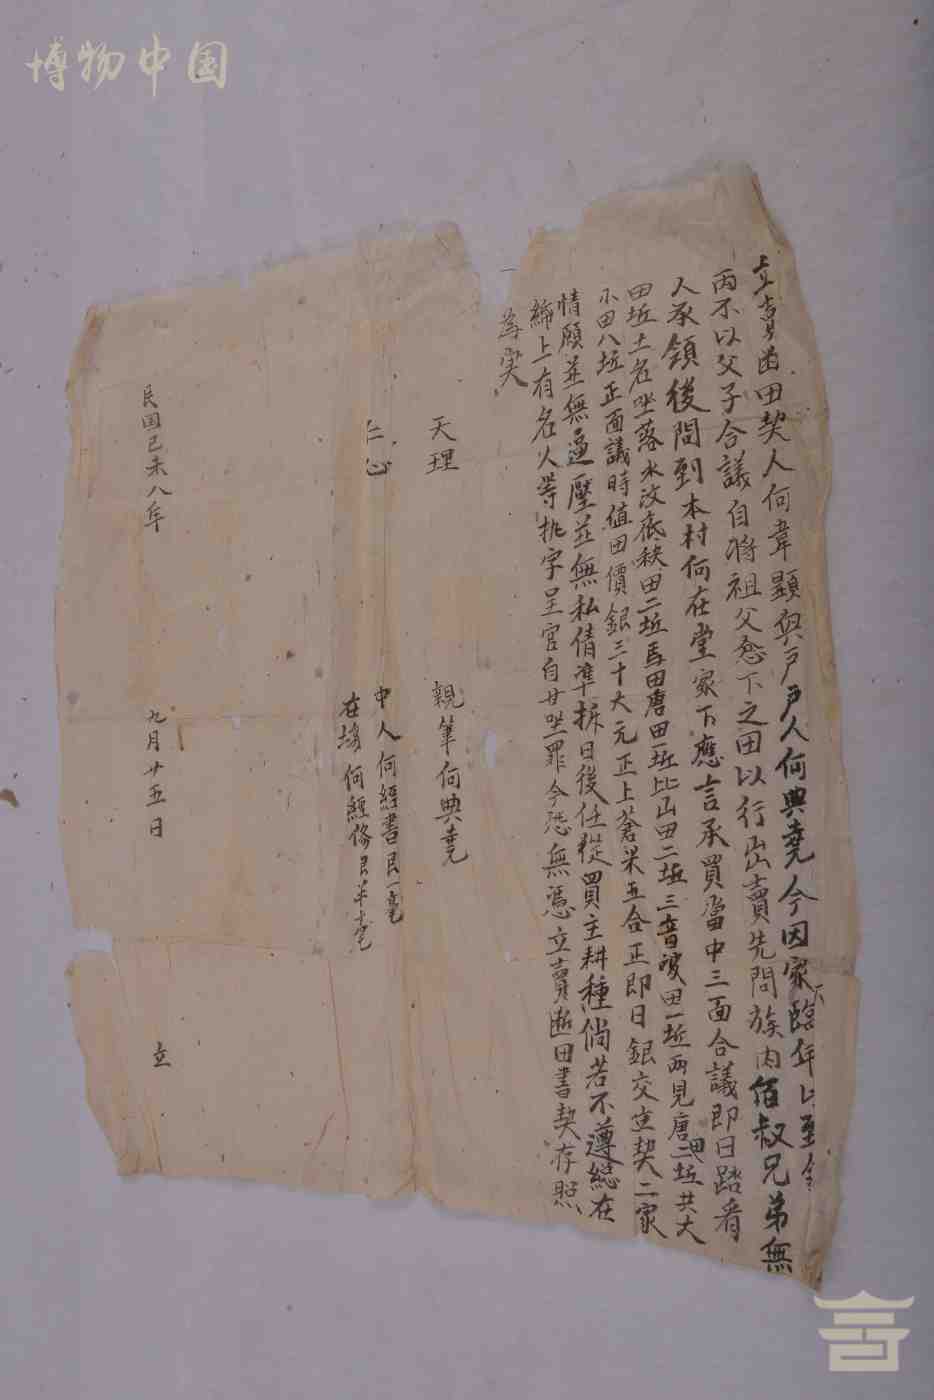 博物中国
立賣断田契人何韋顕與戸戸人何典堯今因家臨年
丙不以父子合議自將祖父忩下之田以行出賣先問族内佰叔兄弟無
人承領後問到本村何在堂家下應言承買當中三面合議即日踏看
田坵土名坐落水汶底秧田二坵馬田唐田一坵比山田二坵三音坡田一坵两見唐田二坵共大
小田八坵正面議時值田價銀三十大元正上蒼米五合正即日銀交契二家
情願並無逼壓並無私債準拆日後任從買主耕種倘若不遵總在
綸上有名人等执字呈官自甘坐罪今恐無憑立賣断田書契存照
為実
天理
仁心
親筆何典堯
中人何經書艮一毫
在塲何經脩艮半毫
民国己未八年 九月廿五日 立